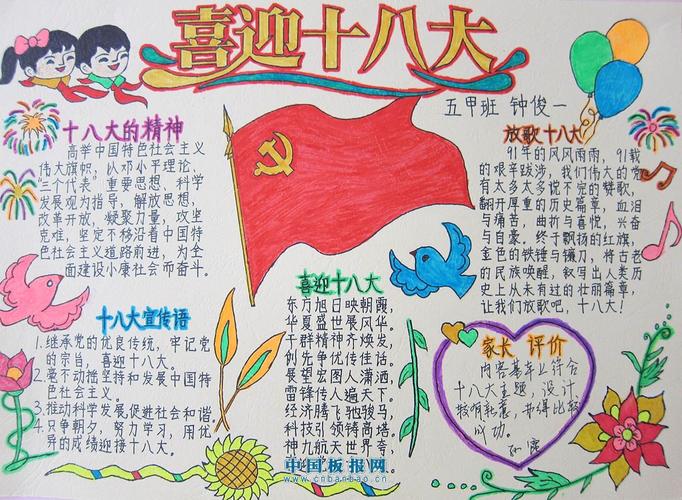 喜迎十八大
五甲班 钟俊一
十八大的精神
高举中国特色社会主义
伟大旗帜，以邓小平理论、
三个代表”重要思想、科学
发展观为指导，解放思想，
改革开放，凝聚力量，攻坚
克难，坚定不移沿着中国特
色社会主义道路前进，为全
面建设小康社会而奋斗。
放歌十八大
91年的风风雨雨，91载
的艰辛跋涉，我们伟大的党
有太多太多说不完的赞歌，
翻开厚重的历史篇章，血泪
与痛苦，曲折与喜悦，兴奋
与自豪。终于飘扬的红旗，
金色的铁锤与镰刀，将古老
的民族唤醒，叙写出人类历
史上从未有过的壮丽篇章，
让我们放歌吧，十八大！
十八大宣传语
1.继承党的优良传统，牢记党
的宗旨，喜迎十八大。
2.毫不动摇坚持和发展中国特
色社会主义。
3.推动科学发展，促进社会和谐
4.只争朝夕，努力学习，用优
异的成绩迎接十八大。
喜迎十八大
东方旭日映朝霞，
华夏盛世展风华。
干群精神齐焕发，
创先争优传佳话。
展望宏图人潇洒，
雷锋传人遍天下。
经济腾飞驰骏马，
科技引领铸高塔。
神九航天世界夸，
家长 评价
内容基本上符合
十八大主题，设计
较有新意，
成功。
中国板报网
www.cnbanbao.cn